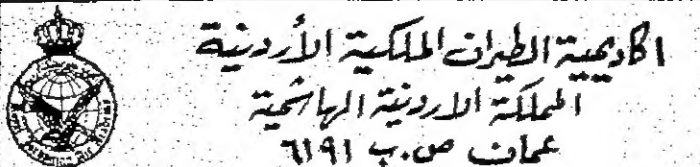 اكاديمية الطيران الملكية الأردنية
المملكة الاردنية الهاشمية
عمان ص.ب ٦١٩١